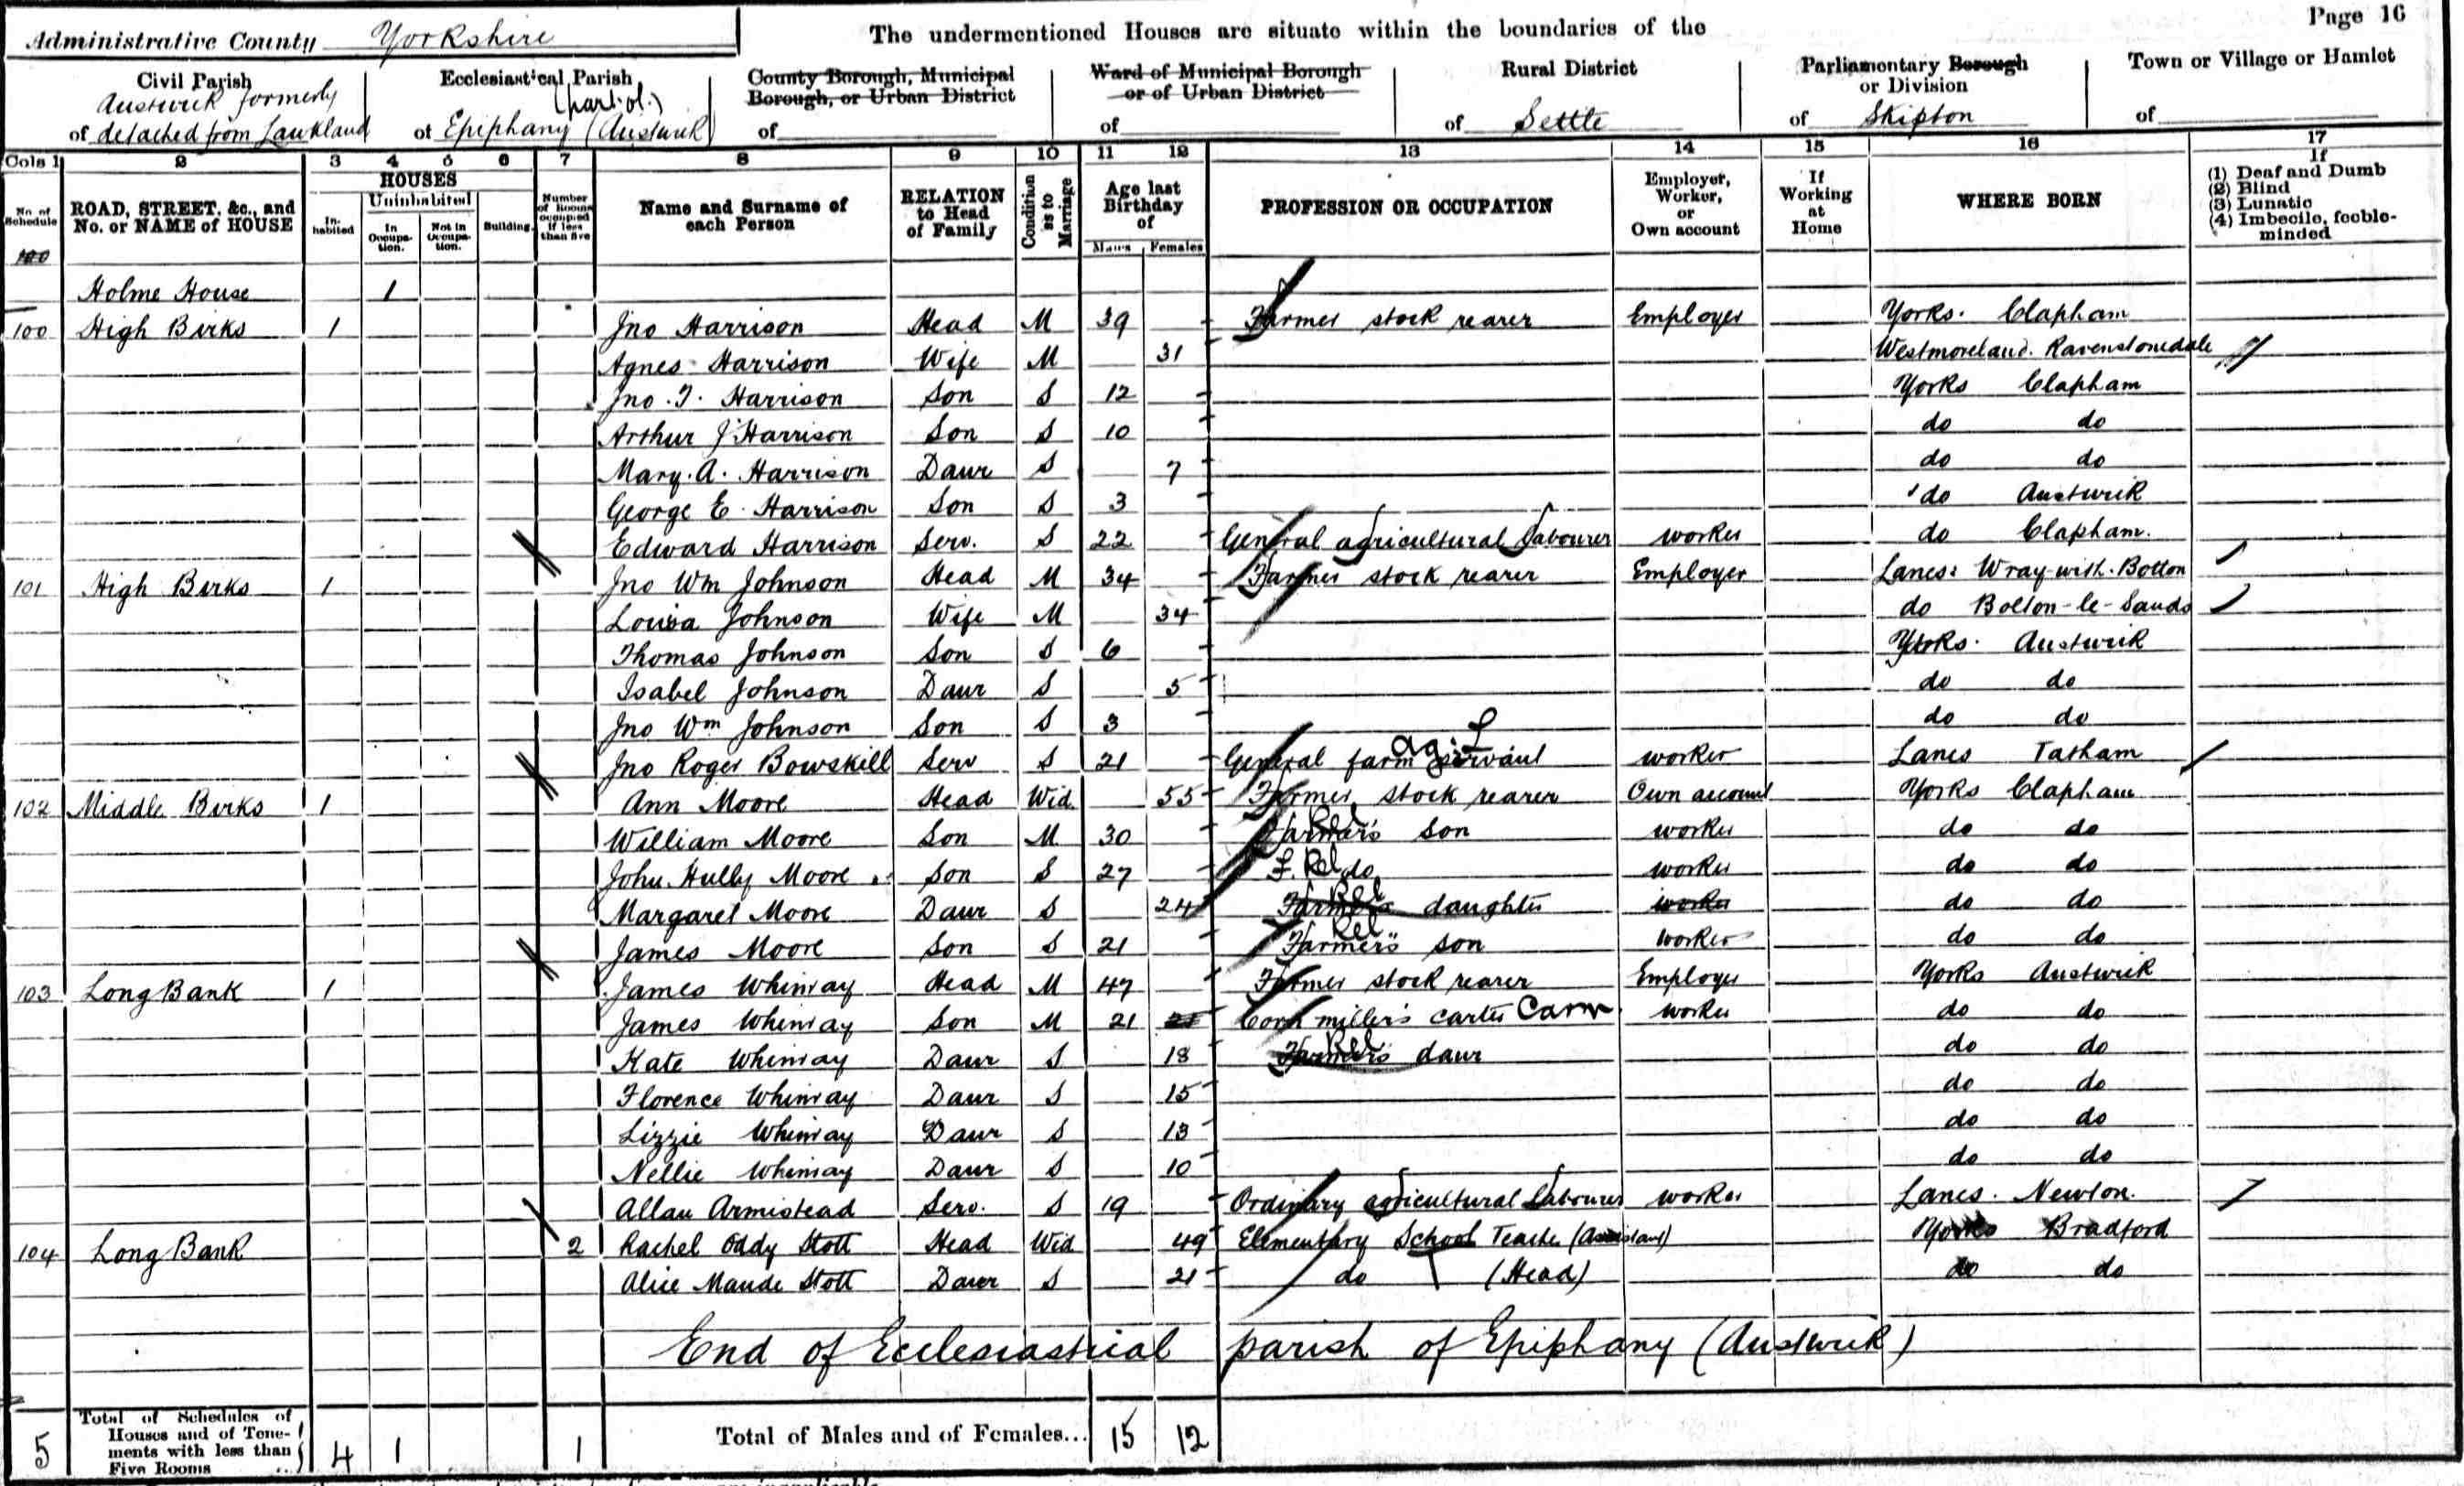 Page 16
Administrative County Yorkshire
The undermentioned Houses are situate within the boundaries of the
Civil Parish of Austwick formerly detached from Lawkland
Ecclesiastical Parish of Epiphany (part of) (Austwick)
County Borough, Municipal Borough, or Urban District of
Ward of Municipal Borough or of Urban District of
Rural District of Settle
Parliamentary Borough or Division of Skipton
Town or Village or Hamlet of
Cols 1 2 3 4 5 6 7 8 9 10 11 12 13 14 15 16 17
No. of Schedule
ROAD, STREET, &c., and No. or NAME of HOUSE
HOUSES
Inhabited
Uninhabited
In Occupation.
Not in Occupation.
Building.
Number of Rooms occupied if less than five
Name and Surname of each Person
RELATION to Head of Family
Condition as to Marriage
Age last Birthday of
Males Females
PROFESSION OR OCCUPATION
Employer, Worker, or Own account
If Working at Home
WHERE BORN
If
(1) Deaf and Dumb
(2) Blind
(3) Lunatic
(4) Imbecile, feeble-minded
100
Holme House 1
100 High Birks 1 Jno Harrison Head M 39 Farmer stock rearer Employer Yorks. Clapham
Agnes Harrison Wife M 31 Westmoreland. Ravenstonedale
Jno. T. Harrison Son S 12 Yorks Clapham
Arthur J Harrison Son S 10 do do
Mary. A. Harrison Daur S 7 do do
George E. Harrison Son S 3 do Austwick
Edward Harrison Serv. S 22 General agricultural labourer worker do Clapham.
101 High Birks 1 Jno Wm Johnson Head M 34 Farmer stock rearer Employer Lancs: Wray-with-Botton
Louisa Johnson Wife M 34 do Bolton-le-Sands
Thomas Johnson Son S 6 Yorks. Austwick
Isabel Johnson Daur S 5 do do
Jno Wm Johnson Son S 3 do do
Jno Roger Bowskill Serv S 21 General farm servant ag: L worker Lancs Tatham
102 Middle Birks 1 Ann Moore Head Wid. 55 Farmer stock rearer Own account Yorks Clapham
William Moore Son M 30 Farmer's Rel son worker do do
John Hully Moore Son S 27 F. Rel do worker do do
Margaret Moore Daur S 24 Farmer's Rel daughter worker do do
James Moore Son S 21 Farmer's Rel son worker do do
103 Long Bank 1 James Whinray Head M 47 Farmer stock rearer Employer Yorks Austwick
James Whinray Son M 21 21 Corn miller's carter Carm worker do do
Kate Whinray Daur S 18 Farmer's Rel daur do do
Florence Whinray Daur S 15 do do
Lizzie Whinray Daur S 13 do do
Nellie Whinray Daur S 10 do do
Allan Armistead Serv. S 19 Ordinary agricultural labourer worker Lancs. Newton.
104 Long Bank 2 Rachel Oddy Stott Head Wid 49 Elementary School Teacher (Assistant) Yorks Bradford
Alice Maude Stott Daur S 21 do (Head) do do
End of Ecclesiastrical parish of Epiphany (Austwick)
5 Total of Schedules of Houses and of Tenements with less than Five Rooms 4 1 1 Total of Males and of Females... 15 12